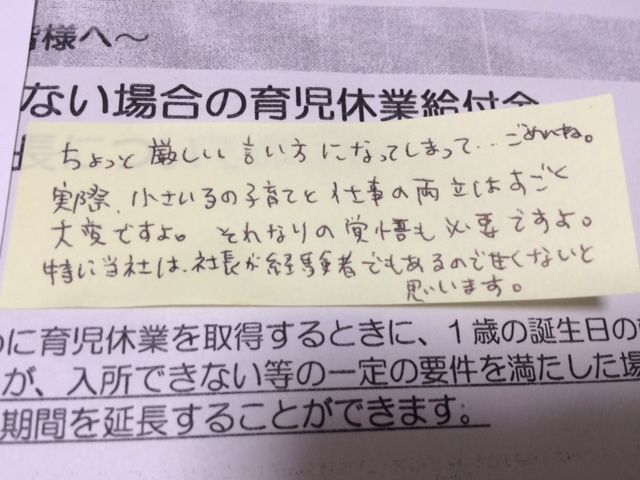 皆様へ～
ない場合の育児休業給付金
長
ちょっと厳しい言い方になってしまって…ごめんね。
実際、小さい子の子育てと仕事の両立はすごく
大変ですよ。それなりの覚悟も必要ですよ。
特に当社は、社長が経験者でもあるので甘くないと
思います。
に育児休業を取得するときに、１歳の誕生日の
が、入所できない等の一定の要件を満たした場
期間を延長することができます。